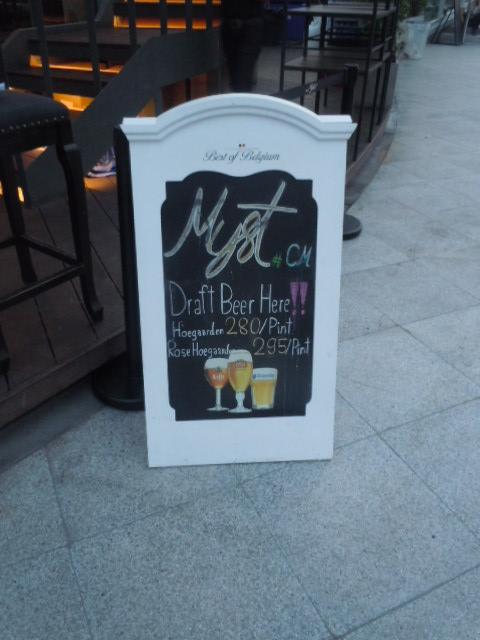 Best of Belgium
Myst
# CM
Draft Beer Here!!
Hoegaarden 280/Pint
Rose Hoegaarden 295/Pint